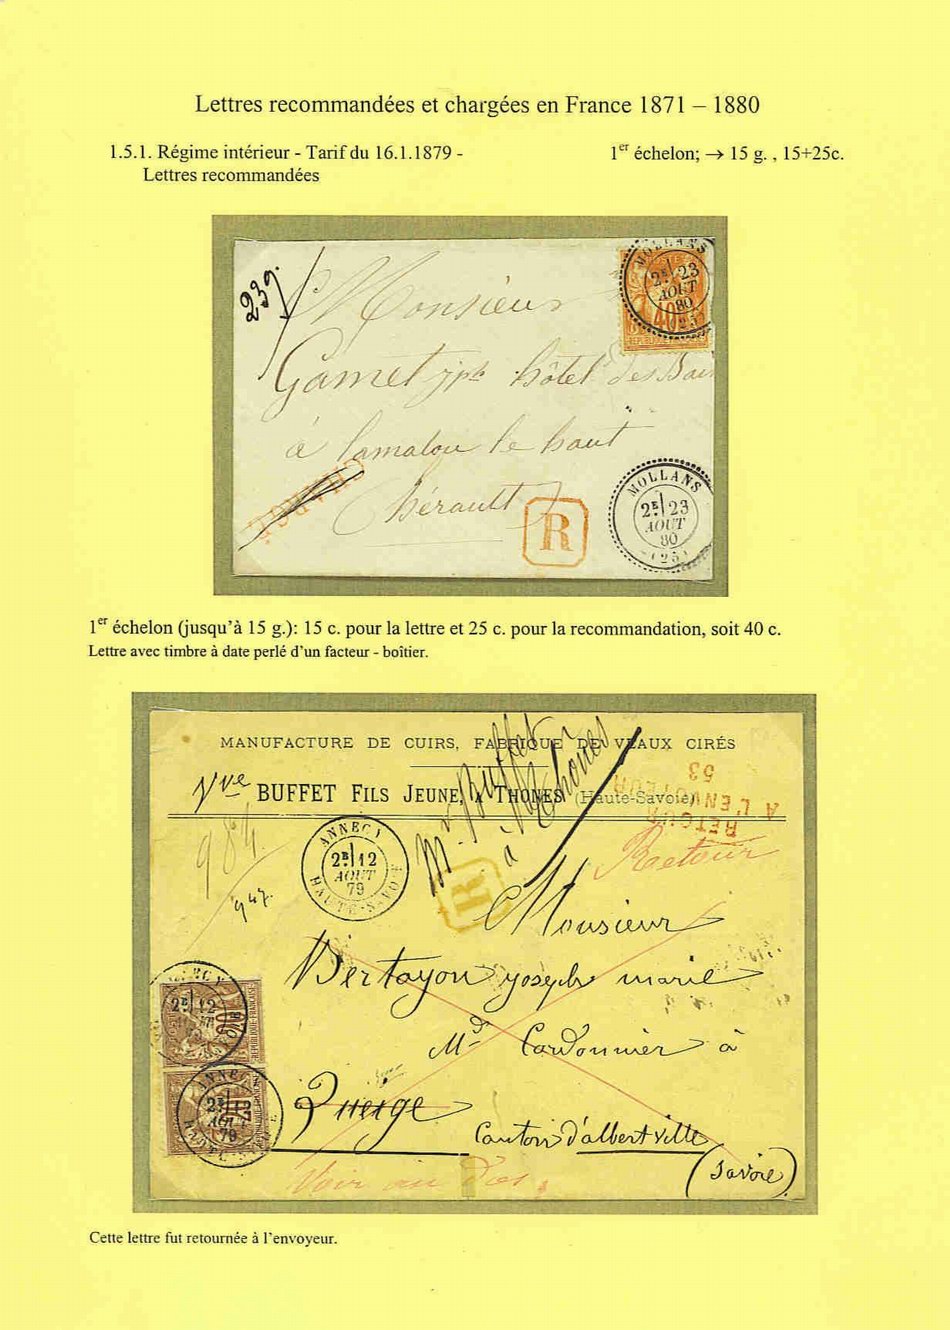 Lettres recommandées et chargées en France 1871 – 1880
1.5.1. Régime intérieur - Tarif du 16.1.1879 -
Lettres recommandées
1er échelon; → 15 g. , 15+25c.
239.
Monsieur
Gamet jph hôtel des Bai
à lamalou le haut
hérault
CHARGÉ
R
MOLLANS
2E 23
AOUT
80
(25)
40
MOLLANS
2E 23
AOUT
80
(25)
1er échelon (jusqu'à 15 g.): 15 c. pour la lettre et 25 c. pour la recommandation, soit 40 c.
Lettre avec timbre à date perlé d'un facteur - boîtier.
MANUFACTURE DE CUIRS, FABRIQUE DE VEAUX CIRÉS
Vve BUFFET FILS JEUNE, A THONES (Haute-Savoie)
Mr Buffet
à Thones
RETOUR
A L'ENVOYEUR
53
Retour
984
947.
ANNECY
2E 12
AOUT
79
HAUTE-SAVOIE
R
Monsieur
Bertayon joseph marie
Md Cordonnier à
Queige
Canton d'albertville
(Savoie)
Voir au dos.
ANNECY
2E 12
REPUBLIQUE FRANÇAISE
ANNECY
79
Cette lettre fut retournée à l'envoyeur.